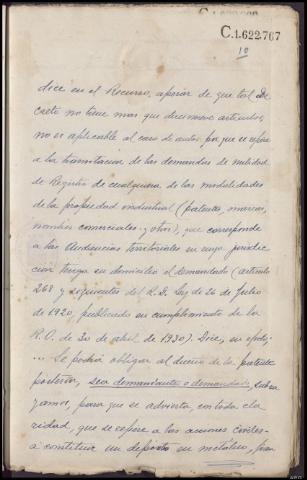 C.1.622.767
10
dice en el Recurso, apesar de que tal De-
creto no tiene mas que diecinueve articulos,
no es aplicable al caso de autos, porque se refiere
a la tramitacion de las demandas de nulidad
de Registro de cualquiera de las modalidades
de la propiedad industrial (patentes, marcas,
nombres comerciales y otros), que corresponde
a las Audiencias territoriales en cuya jurisdic-
cion tenga su domicilio el demandado (articulo
268 y siguientes del R.D. Ley de 26 de Julio
de 1920, publicado en cumplimiento de la
R.O. de 30 de abril de 1930). Dice, en efecto:
... Se podrá obligar al dueño de la patente
posterior, sea demandante o demandado, subra-
yamos, para que se advierta, con toda cla-
ridad, que se refiere a las acciones civiles-
a constituir un deposito en metálico, para